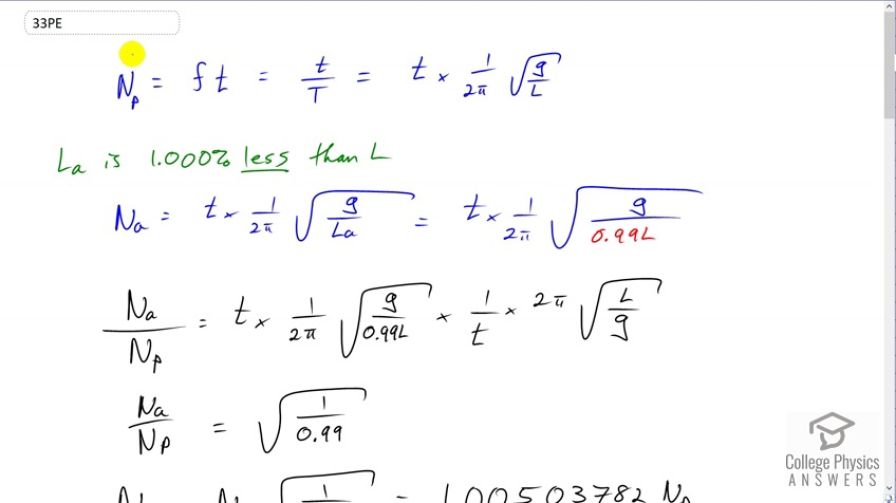 33PE
N_p = ft = t/T = t × 1/2π √(g/L)
La is 1.000% less than L
Na = t × 1/2π √(g/La) = t × 1/2π √(g/0.99L)
Na/Np = t × 1/2π √(g/0.99L) × 1/t × 2π √(L/g)
Na/Np = √(1/0.99)
= 1.00503782 N
College Physics
ANSWERS